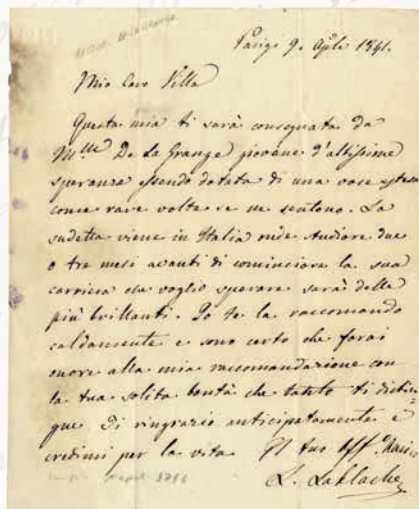 Parigi 9. Aple 1841.
Mio Caro Villa
Questa mia ti sarà consegnata da
Mlle De La Grange giovane d'altissime
speranze essendo dotata di una voce estesa
come rare volte se ne sentono. La
sudetta viene in Italia onde studiare due
o tre mesi avanti di cominciare la sua
carriera che voglio sperare sarà delle
più brillanti. Io te la raccomando
caldamente e sono certo che farai
onore alla mia raccomandazione con
la tua solita bontà che tanto ti distin=
gue. Ti ringrazio anticipatamente e
credimi per la vita Il tuo Aff. Amico
L. Lablache